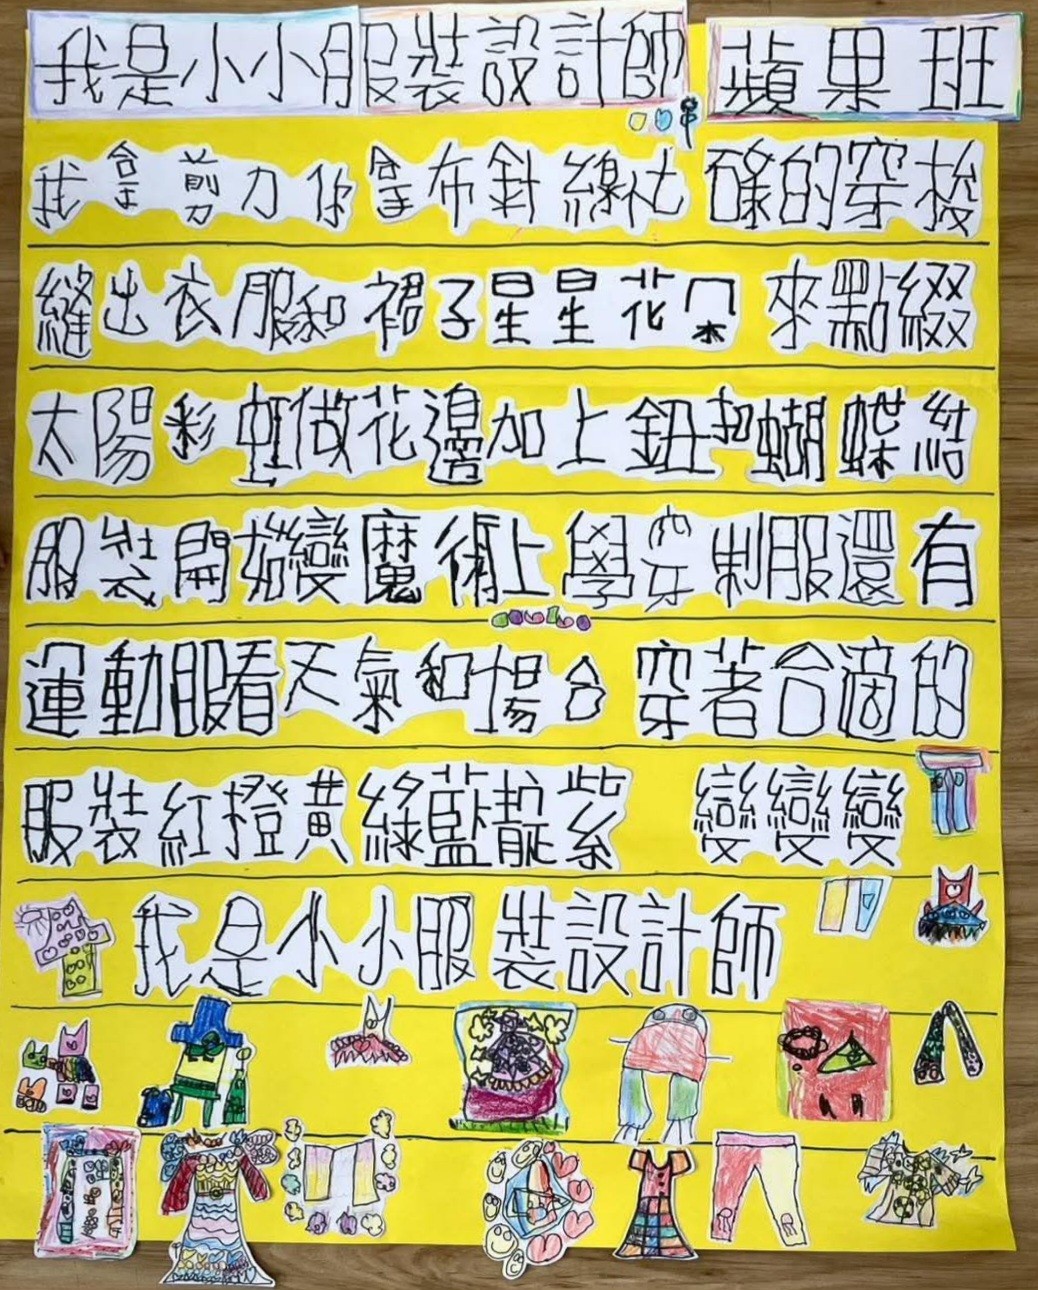 我是小小服裝設計師 蘋果班
我拿剪刀你拿布針線忙碌的穿梭
縫出衣服和裙子星星花朵來點綴
太陽彩虹做花邊加上鈕扣蝴蝶結
服裝開始變魔術上學穿制服還有
運動服看天氣和場合 穿著合適的
服裝紅橙黃綠藍靛紫 變變變
我是小小服裝設計師